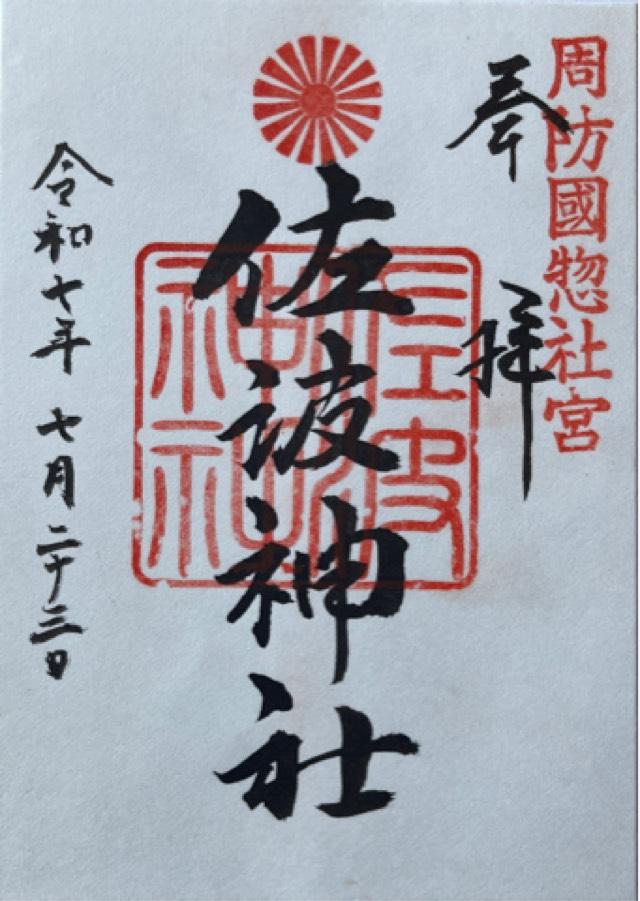 周防國惣社宮
奉拝
佐波神社
佐波神社
令和七年七月二十三日